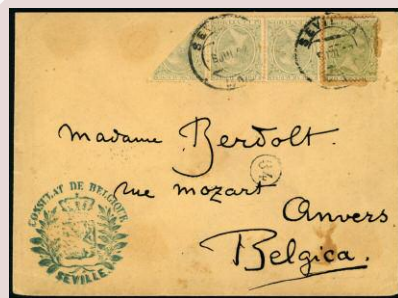 SEVILLA
SEVILLA
Madame Berdolt.
34
rue mozart
Anvers
Belgica.
CONSULAT DE BELGIQUE
SEVILLE